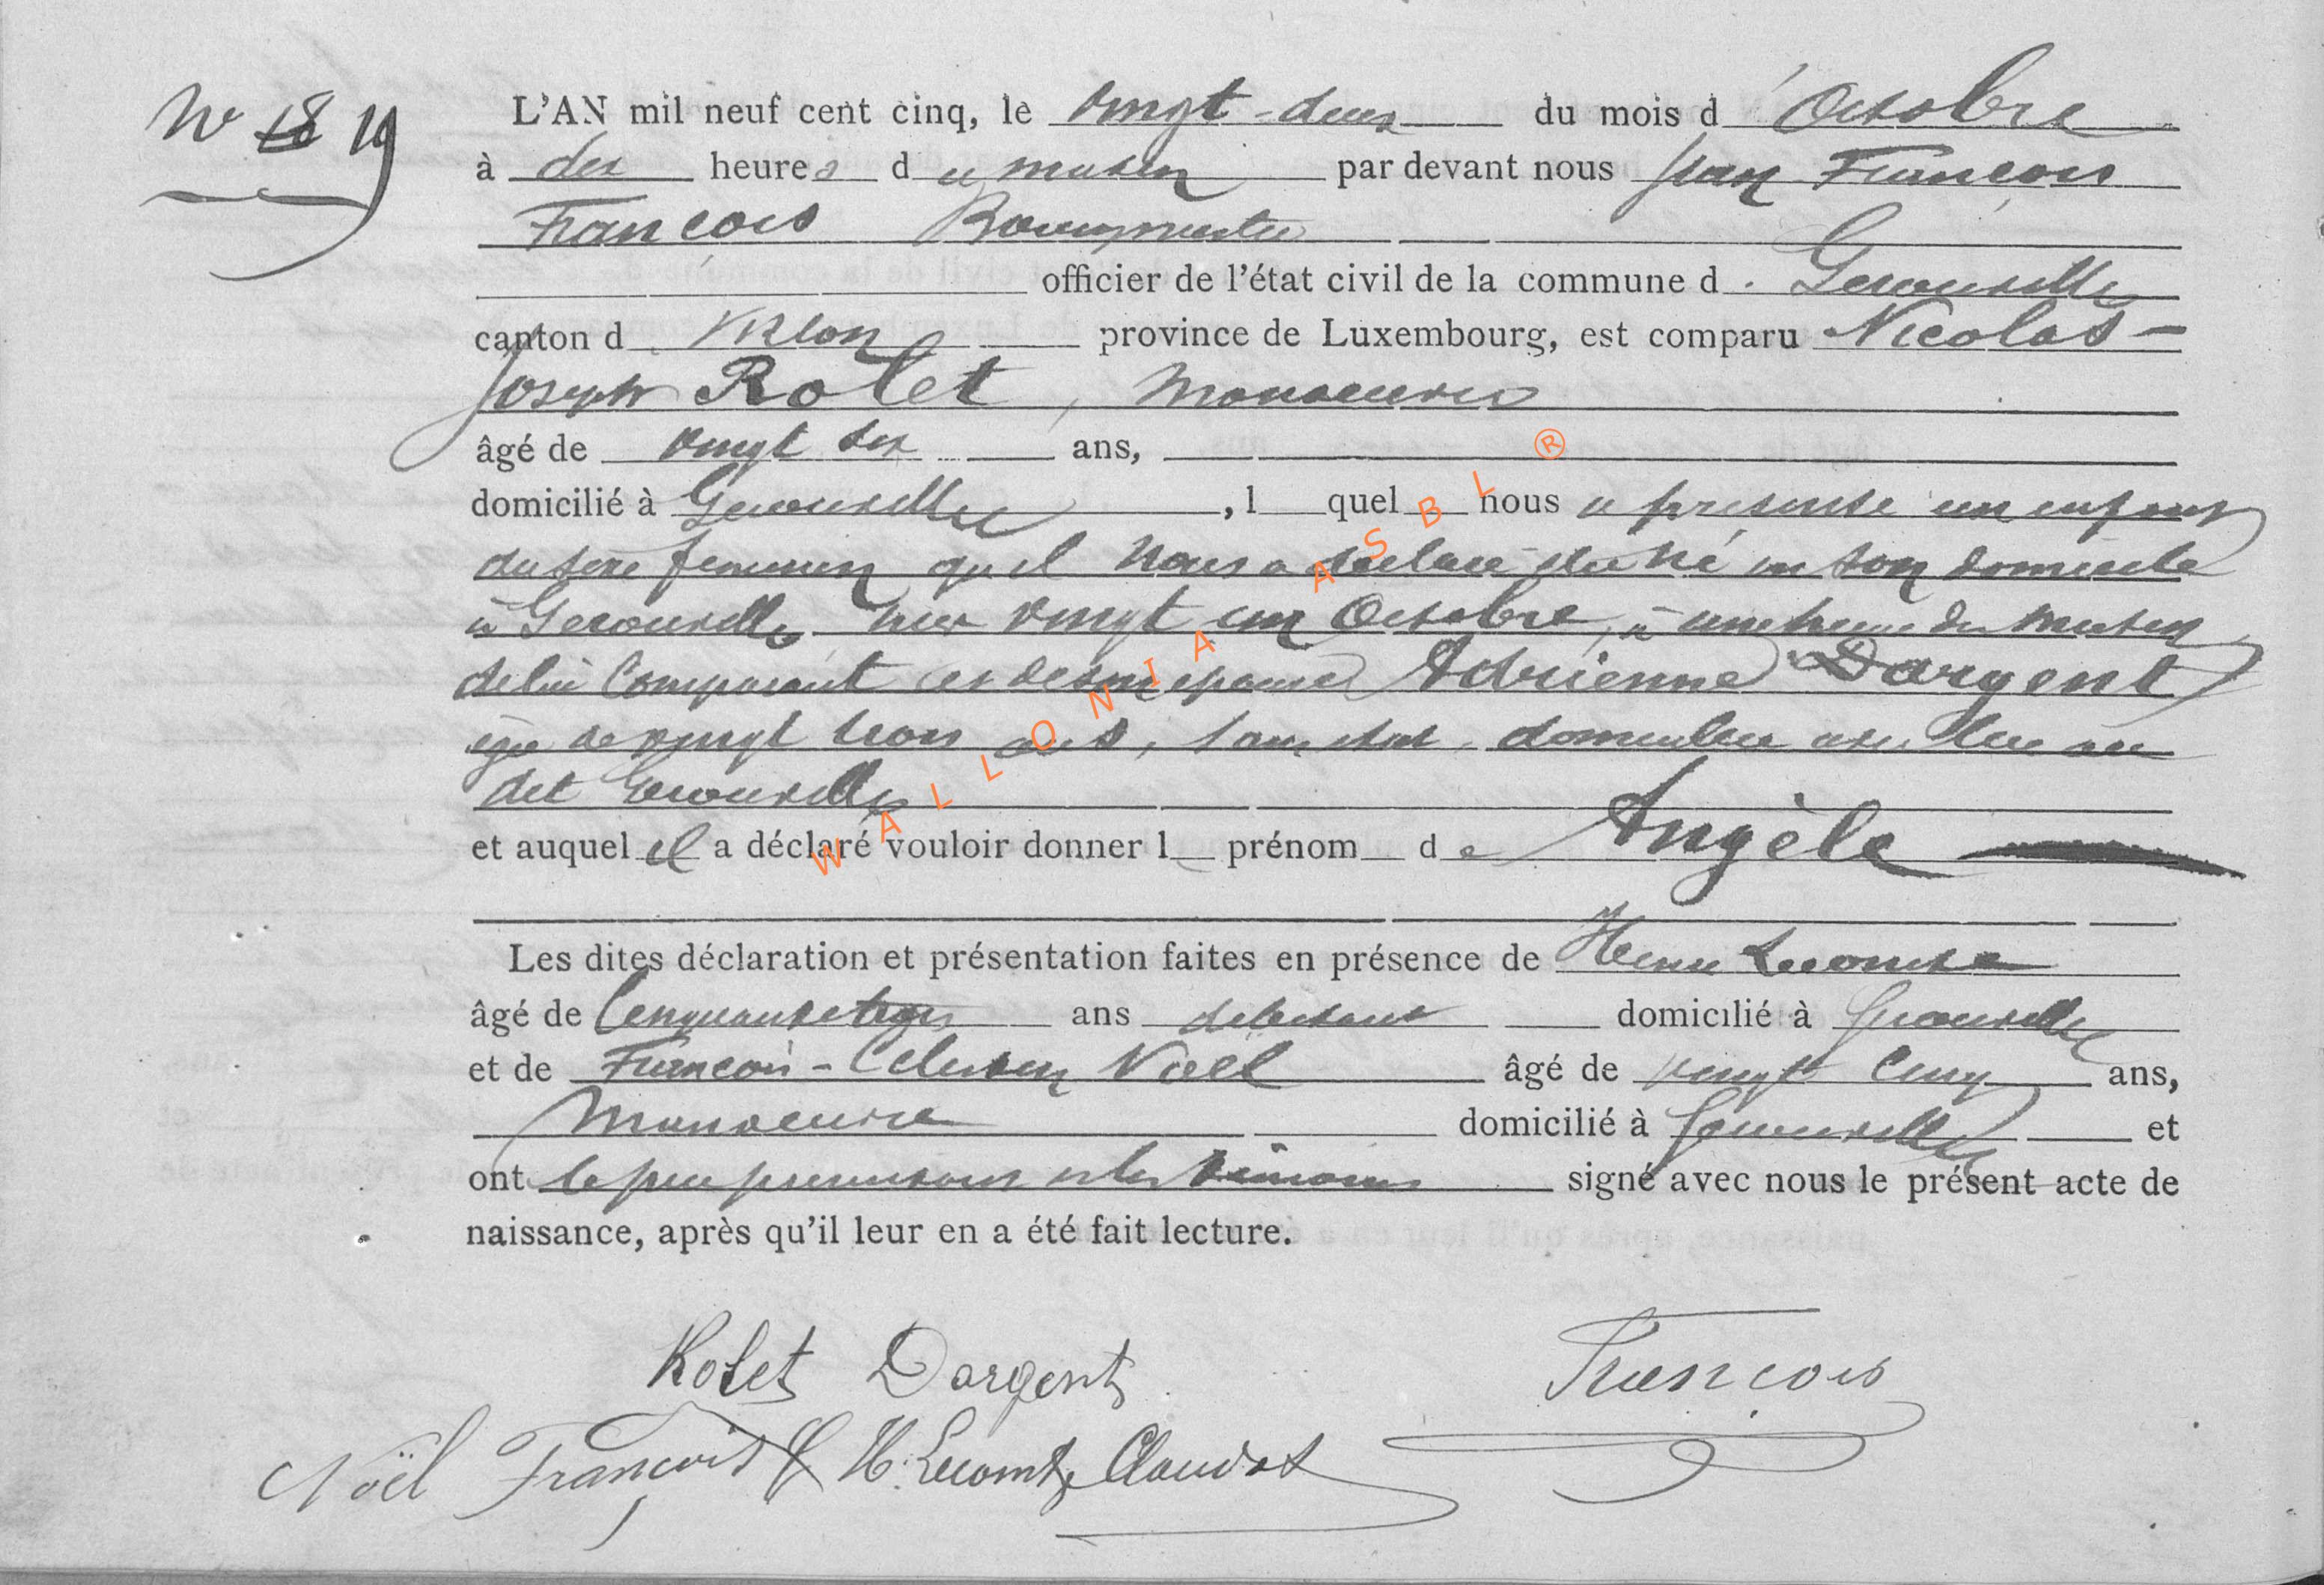 N° 18 19
L'AN mil neuf cent cinq, le vingt-deux du mois d'Octobre
à dix heures du matin par devant nous Jean François
François Bourgmestre
officier de l'état civil de la commune d. Gerouville
canton d Virton province de Luxembourg, est comparu Nicolas-
Joseph Rolet, manoeuvre
âgé de vingt six ans,
domicilié à Gerouville, l quel nous a présenté un enfant
du sexe feminin qu'il nous a déclaré être né en son domicile
à Gerouville hier vingt un Octobre, à une heure du matin,
de lui Comparant et de son épouse Adrienne Dargent
âgée de vingt trois ans, sans état, domiciliée avec lui au
dit Gerouville
et auquel il a déclaré vouloir donner l prénom de Angèle
Les dites déclaration et présentation faites en présence de Henri Lecomte
âgé de Cinquante ans débitant domicilié à Gerouville
et de François-Célestin Noël âgé de vingt cinq ans,
manoeuvre domicilié à Gerouville et
ont le père et les témoins signé avec nous le présent acte de
naissance, après qu'il leur en a été fait lecture.
Rolet Dargent François
Noël François C H. Lecomte Claudot
WALLONIA ASBL ®